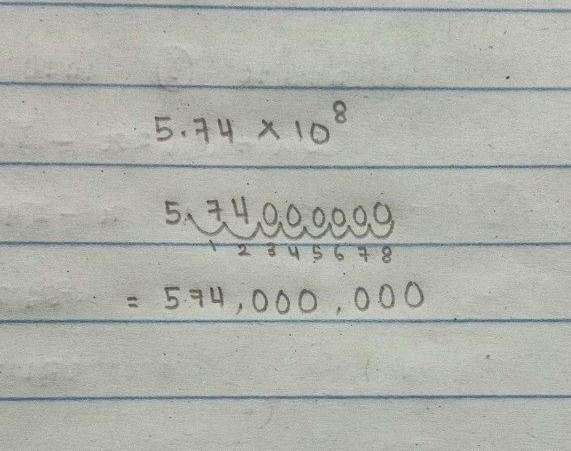 5.74 × 10⁸
5.74000000
1 2 3 4 5 6 7 8
= 574,000,000